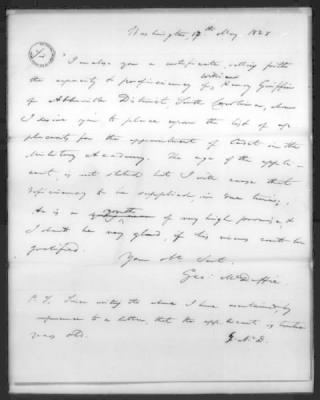 Washington 17th May 1828
Sir
I enclose you a certificate, setting forth
the capacity & proficiency of William Henry Griffin
of Abbeville District, South Carolina, whom
I desire you to place upon the list of ap-
plicants for the appointment of cadet in the
Military Academy. The age of the appli-
cant, is not stated but I will cause that
deficiency to be supplied, in due time,
He is a youth of very high promise, &
I shall be very glad, if his views can be
gratified.
Your obt Servt.
Geo: McDuffie.
P.S. Since writing the above I have ascertained, by
reference to a letter, that the applicant is
years old.
G. McD.